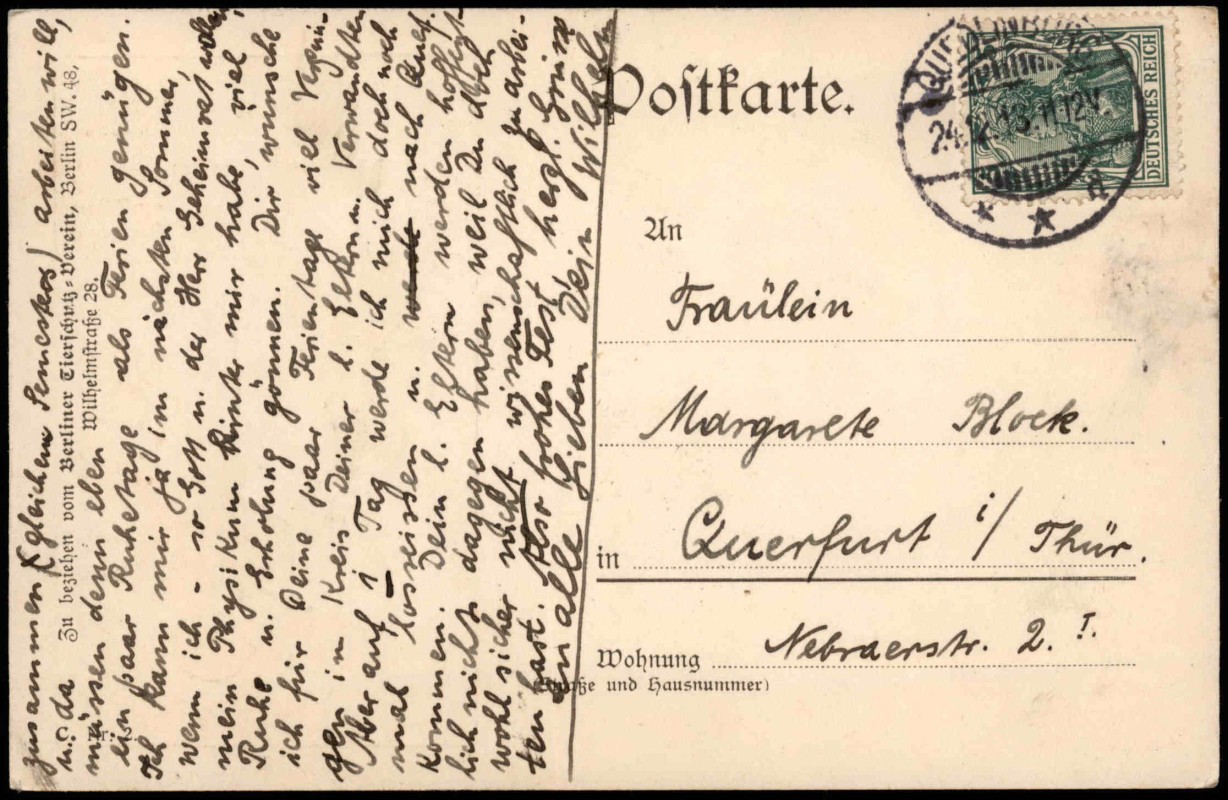 zusammen (gleichem Semester) arbeiten will,
u. da
müssen denn eben
ein paar Ruhetage als Ferien genügen.
Ich kann mir ja im nächsten Sommer,
wenn ich - so Gott u. der Herr Geheimrat wollen
mein Physikum hinter mir habe, viel
Ruhe u. Erholung gönnen. Dir, wünsche
ich für Deine paar Ferientage viel Vergnü-
gen im Kreis Deiner l. Eltern u. Verwandten
Aber auf 1 Tag werde ich mich doch noch
mal losreissen u. nach Querf.
kommen. Dein l. Eltern werden hoffent-
lich nichts dagegen haben, weil Du doch
wohl sicher nicht wissenschaftlich zu arbei-
ten hast. Also frohes Fest herzl. Grüsse
Euch alle Lieben Dein Wilhelm
Zu beziehen vom Berliner Tierschutz-Verein, Berlin SW. 48,
Wilhelmstraße 28.
Postkarte.
DEUTSCHES REICH
24.12.13.11-12V.
An
Fräulein
Margarete Block.
in Querfurt i/ Thür.
Wohnung Nebraerstr. 2. I.
(Straße und Hausnummer)